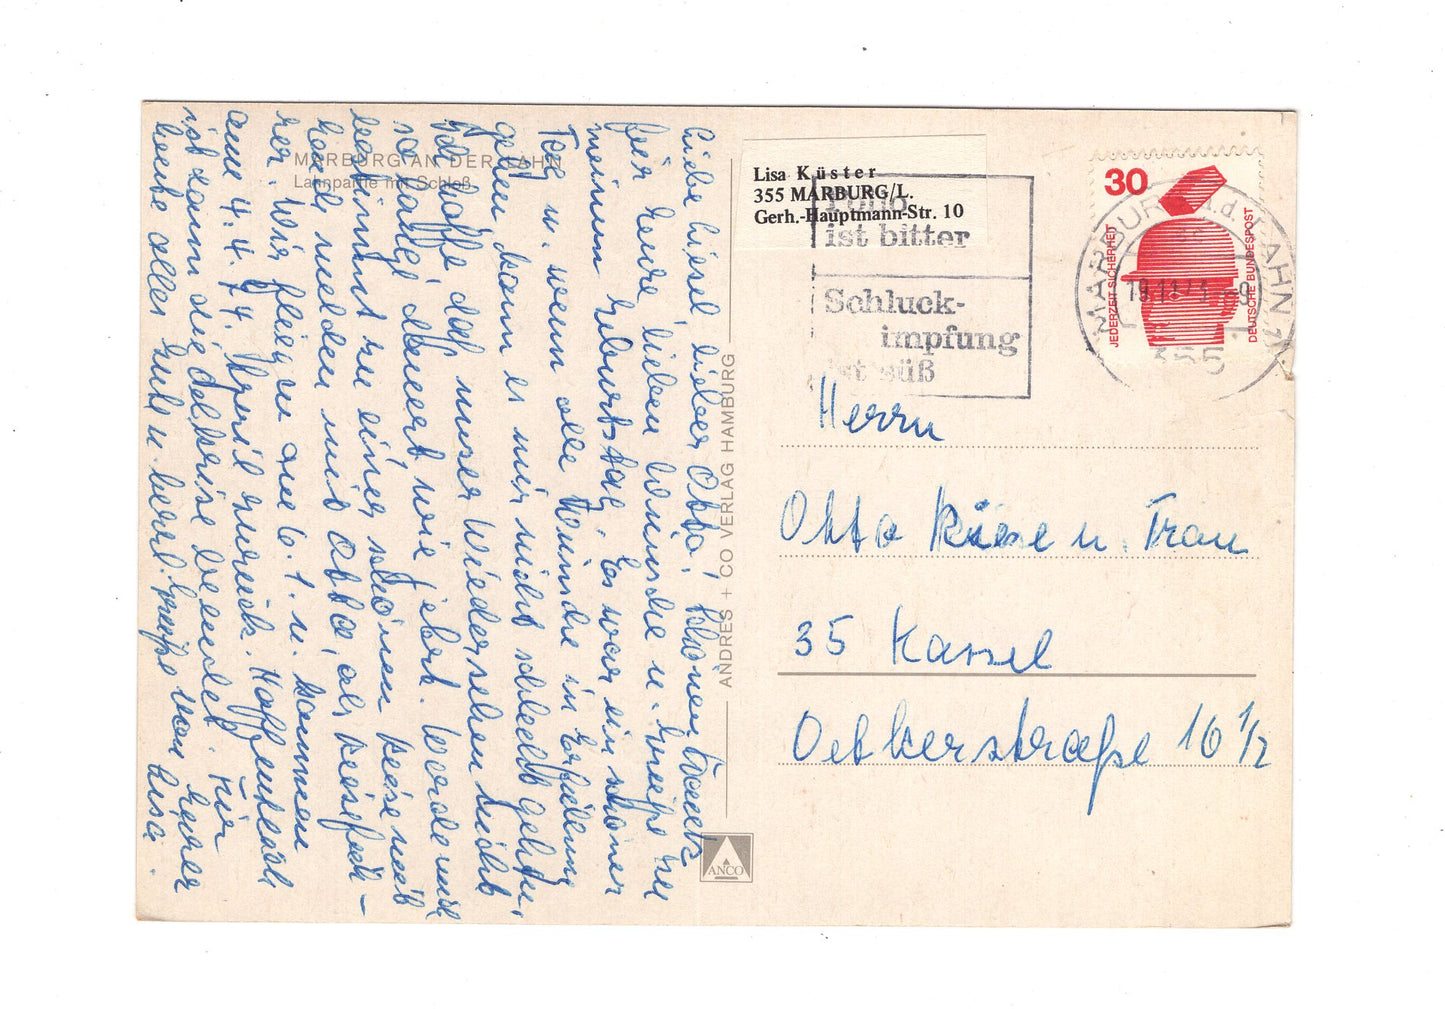 MARBURG AN DER LAHN
Lahnpartie mit Schloß
Liebe Liesel, lieber Otto! Schönen Dank
für Eure lieben Wünsche u. Grüße zu
meinem Geburtstag. Es war ein schöner
Tag u. wenn alle Wünsche in Erfüllung
gehen kann es mir nicht schlecht gehen.
Ich hoffe, daß unser Wiedersehen nicht
so lange dauert wie jetzt. Werde mich
bestimmt zu einer schönen
mal melden mit Otto, als
her. Wir fliegen am 6. 1. u. kommen
am 4. 4. 74. April zurück. Hoffentlich
ist dann die beendet. Für
heute alles Gute u. herzl. Grüße von Eurer
Lisa.
ANDRES + CO VERLAG HAMBURG
ANCO
Lisa Küster
355 MARBURG/L.
Gerh.-Hauptmann-Str. 10
Polio
ist bitter
Schluck-
impfung
ist süß
30
JEDERZEIT SICHERHEIT
DEUTSCHE BUNDESPOST
MARBURG a.d. LAHN 1
355
Herrn
Otto u. Frau
35 Kassel
Oetkerstraße 16 1/2